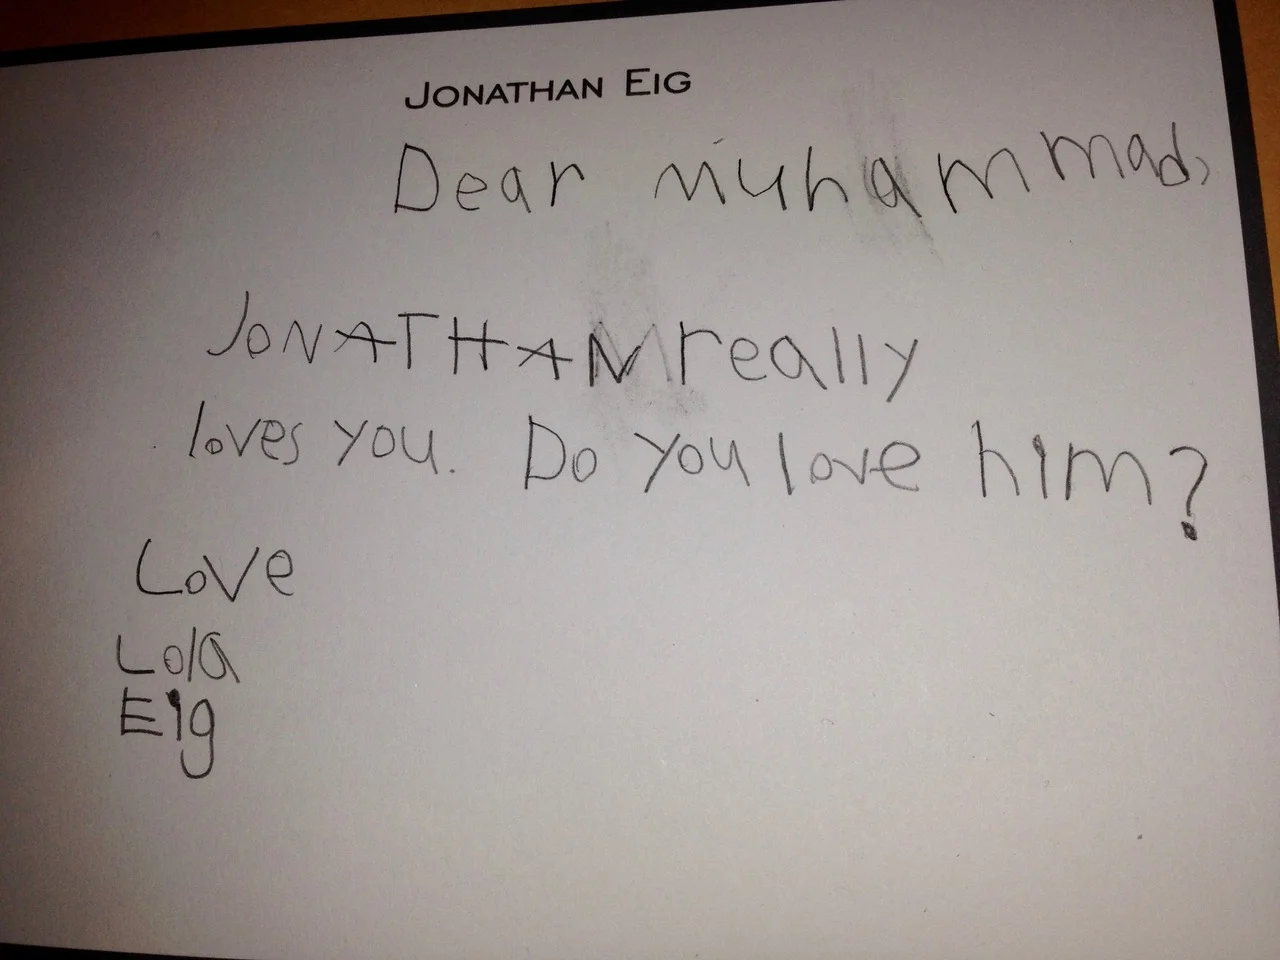 JONATHAN EIG
Dear muhammad,
JONATHAN really
loves you. Do you love him?
Love
Lola
Eig